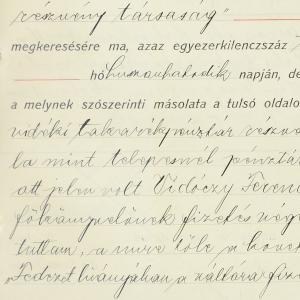 részvény társaság"
megkeresésére ma, azaz egyezerkilenczszáz
hó huszonhatodik napján, de
a melynek szószerinti másolata a tulsó oldalo
vidéki takarékpénztár részvé
la mint telepesnél pénztár
ott jelen volt Vidóczy Ferenc
főkönyvelőnek fizetés vége
tattam, a mire tőle a követ
"Fedezet hiányában a váltóra fiz